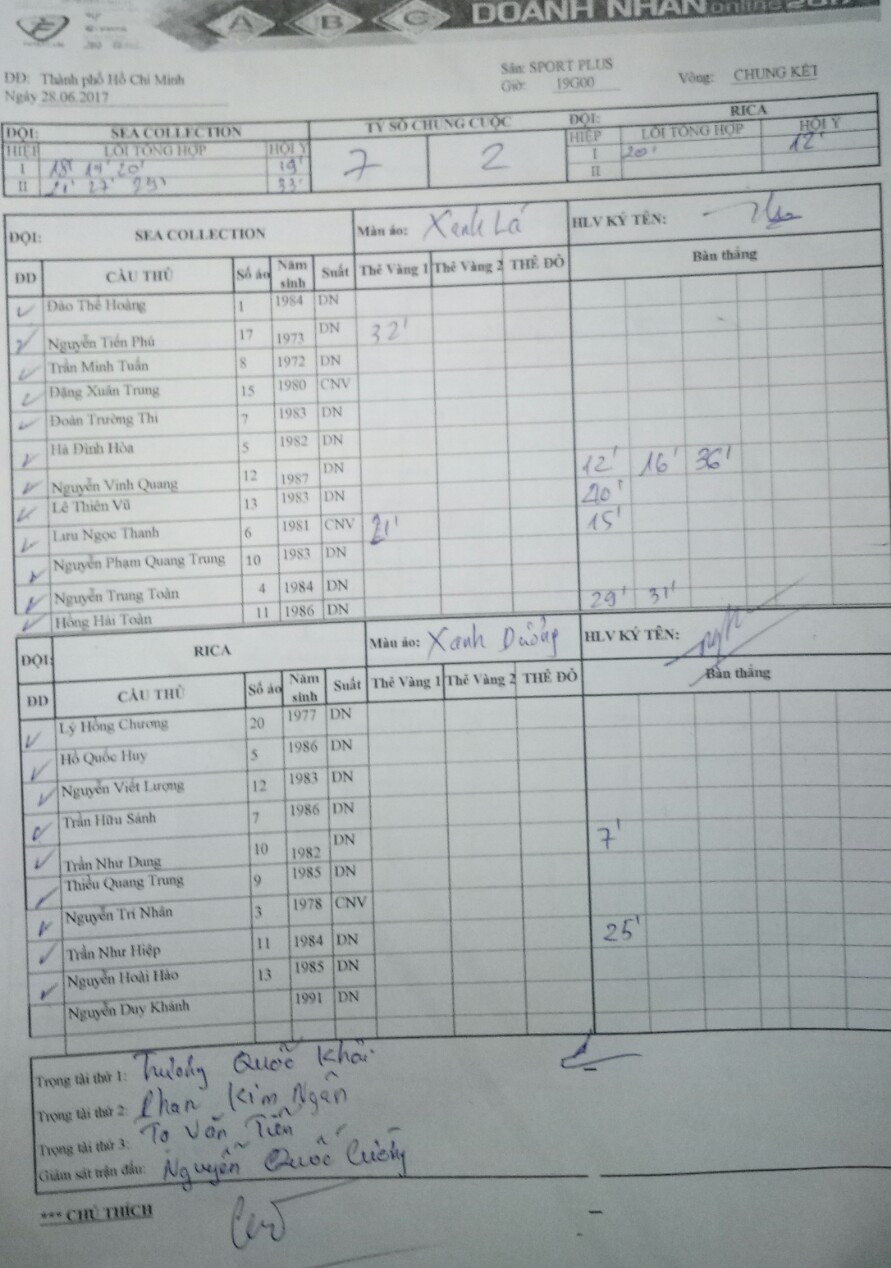 A B C DOANH NHÂN online
DĐ: Thành phố Hồ Chí Minh Sân: SPORT PLUS
Ngày 28.06.2017 Giờ: 19G00 Vòng: CHUNG KẾT
ĐỘI: SEA COLLECTION TỶ SỐ CHUNG CUỘC ĐỘI: RICA
HIỆP LỖI TỔNG HỢP HỘI Ý 7 2 HIỆP LỖI TỔNG HỢP HỘI Ý
I 18' 19' 20' 19' I 20' 12'
II 21' 27' 29' 33' II
ĐỘI: SEA COLLECTION Màu áo: Xanh Lá HLV KÝ TÊN:
DD CẦU THỦ Số áo Năm sinh Suất Thẻ Vàng 1 Thẻ Vàng 2 THẺ ĐỎ Bàn thắng
Đào Thế Hoàng 1 1984 DN
Nguyễn Tiến Phú 17 1973 DN 32'
Trần Minh Tuấn 8 1972 DN
Đặng Xuân Trung 15 1980 CNV
Đoàn Trường Thi 7 1983 DN
Hà Đình Hòa 5 1982 DN
Nguyễn Vinh Quang 12 1987 DN 12' 16' 36'
Lê Thiên Vũ 13 1983 DN 20'
Lưu Ngọc Thanh 6 1981 CNV 21' 15'
Nguyễn Phạm Quang Trung 10 1983 DN
Nguyễn Trung Toàn 4 1984 DN 29' 31'
Hồng Hải Toàn 11 1986 DN
ĐỘI: RICA Màu áo: Xanh Dương HLV KÝ TÊN:
DD CẦU THỦ Số áo Năm sinh Suất Thẻ Vàng 1 Thẻ Vàng 2 THẺ ĐỎ Bàn thắng
Lý Hồng Chương 20 1977 DN
Hồ Quốc Huy 5 1986 DN
Nguyễn Viết Lượng 12 1983 DN
Trần Hữu Sánh 7 1986 DN
Trần Như Dung 10 1982 DN 7'
Thiều Quang Trung 9 1985 DN
Nguyễn Trí Nhân 3 1978 CNV
Trần Như Hiệp 11 1984 DN 25'
Nguyễn Hoài Hảo 13 1985 DN
Nguyễn Duy Khánh 1991 DN
Trọng tài thứ 1: Trương Quốc Khải
Trọng tài thứ 2: Phan Kim Ngân
Trọng tài thứ 3: Tô Văn Tiến
Giám sát trận đấu: Nguyễn Quốc Cường
*** CHÚ THÍCH